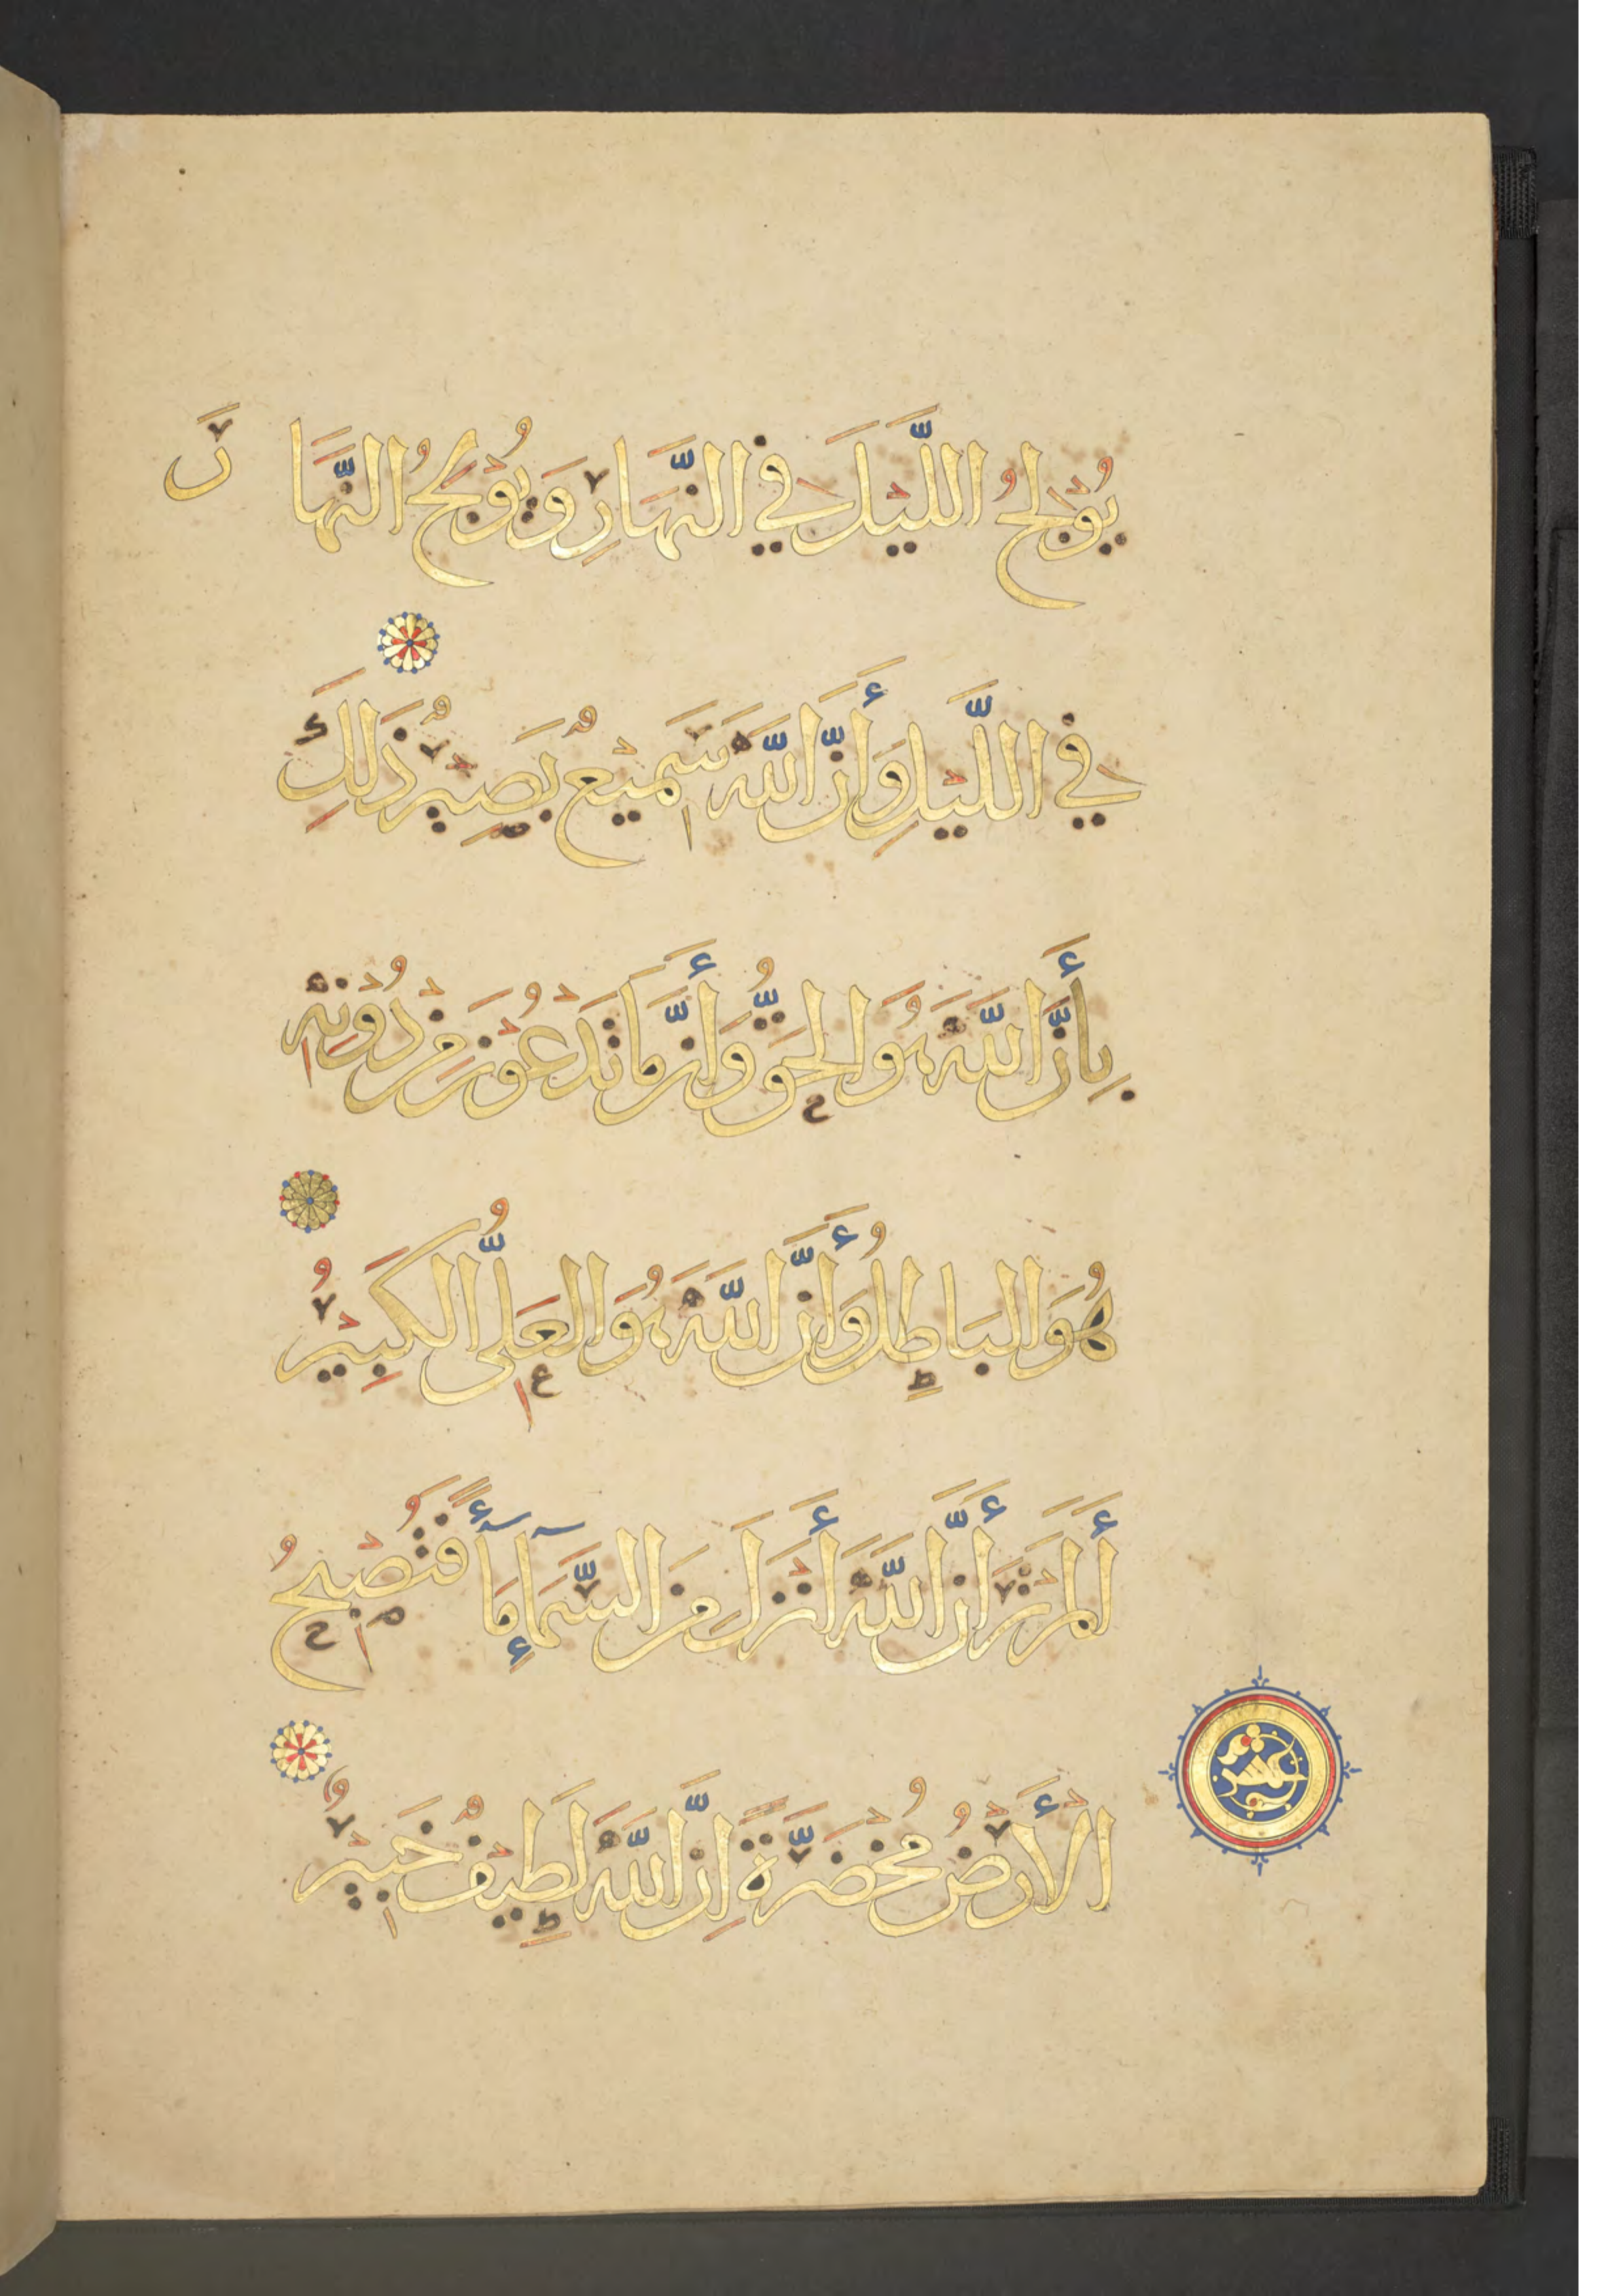 يُوْلِجُ اللَّيْلَ فِي النَّهَارِ وَيُوْلِجُ النَّهَارَ
فِي اللَّيْلِ وَأَنَّ اللَّهَ سَمِيْعٌ بَصِيْرٌ ذَلِكَ
بِأَنَّ اللَّهَ هُوَ الحَقُّ وَأَنَّ مَا تَدْعُوْنَ مِنْ دُوْنِهِ
هُوَ البَاطِلُ وَأَنَّ اللَّهَ هُوَ العَلِيُّ الكَبِيْرُ
أَلَمْ تَرَ أَنَّ اللَّهَ أَنْزَلَ مِنَ السَّمَآءِ مَآءً فَتُصْبِحُ
الْأَرْضُ مُخْضَرَّةً إِنَّ اللَّهَ لَطِيْفٌ خَبِيْرٌ
عشر